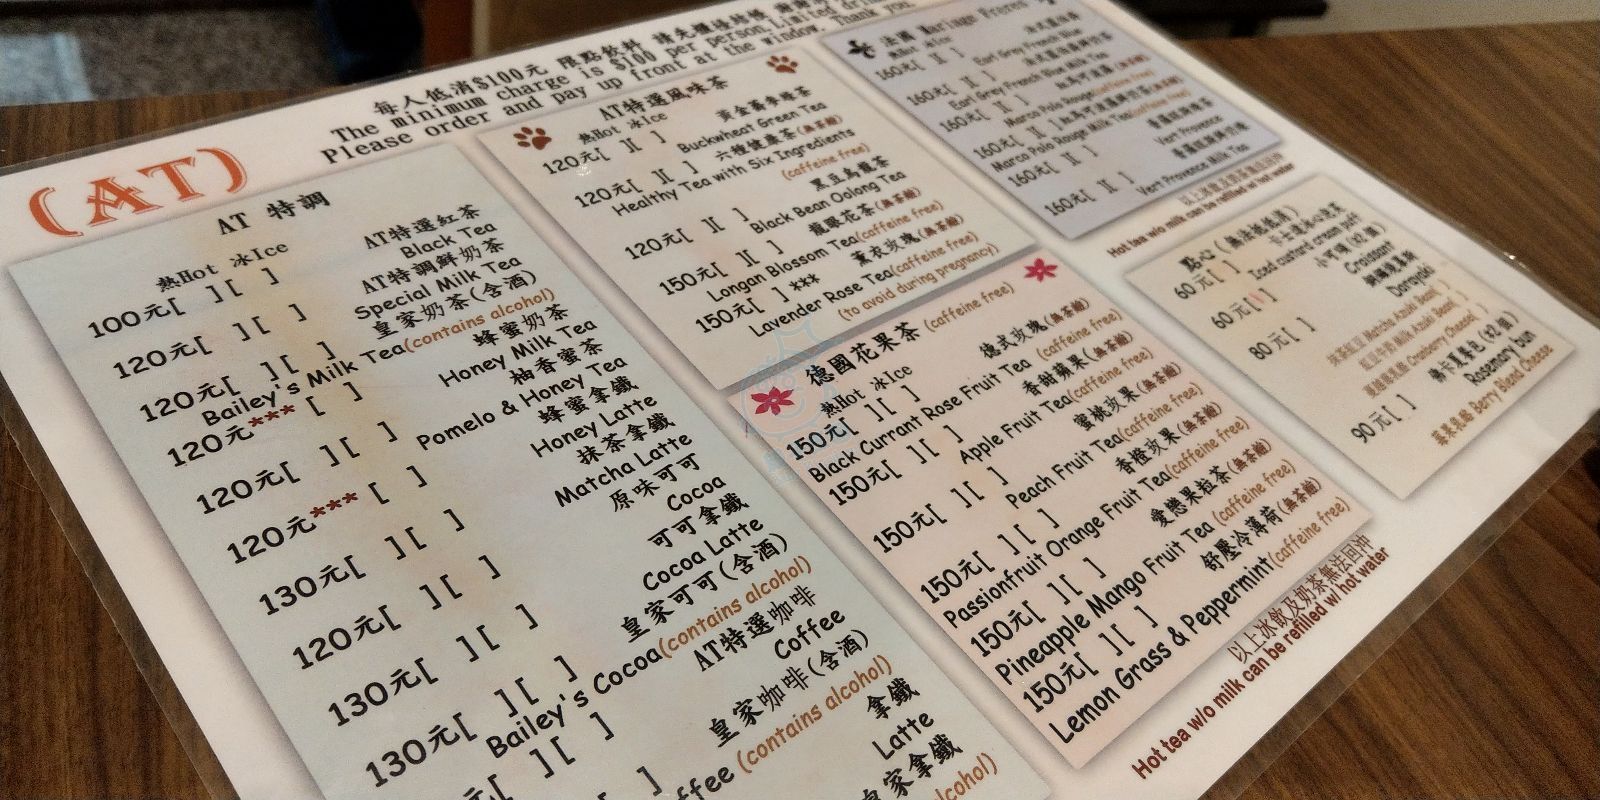 每人低消$100元 限點飲料 請先櫃檯結帳
The minimum charge is $100 per person, Limited
Please order and pay up front at the window. Thank you.
(AT)
AT 特調
熱Hot 冰Ice
100元[ ][ ] AT特選紅茶
Black Tea
120元[ ][ ] AT特調鮮奶茶
Special Milk Tea
120元[ ][ ] 皇家奶茶(含酒)
Bailey's Milk Tea(contains alcohol)
120元*** [ ] 蜂蜜奶茶
Honey Milk Tea
120元[ ][ ] 柚香蜜茶
Pomelo & Honey Tea
120元*** [ ] 蜂蜜拿鐵
Honey Latte
130元[ ][ ] 抹茶拿鐵
Matcha Latte
120元[ ][ ] 原味可可
Cocoa
130元[ ][ ] 可可拿鐵
Cocoa Latte
130元[ ][ ] 皇家可可(含酒)
Bailey's Cocoa(contains alcohol)
[ ][ ] AT特選咖啡
Coffee
皇家咖啡(含酒)
(contains alcohol)
拿鐵
Latte
皇家拿鐵
AT特選風味茶
熱Hot 冰Ice
120元[ ][ ] 黃金蕎麥綠茶
Buckwheat Green Tea
120元[ ][ ] 六種健康茶(無茶鹼)
Healthy Tea with Six Ingredients
(caffeine free)
120元[ ][ ] 黑豆烏龍茶
Black Bean Oolong Tea
150元[ ][ ] 龍眼花茶(無茶鹼)
Longan Blossom Tea(caffeine free)
150元[ ]*** 薰衣玫瑰(無茶鹼)
Lavender Rose Tea(caffeine free)
(to avoid during pregnancy)
德國花果茶 (caffeine free)
熱Hot 冰Ice
150元[ ][ ] 德式玫瑰(無茶鹼)
Black Currant Rose Fruit Tea (caffeine free)
150元[ ][ ] 香甜蘋果(無茶鹼)
Apple Fruit Tea(caffeine free)
150元[ ][ ] 蜜桃玫果(無茶鹼)
Peach Fruit Tea(caffeine free)
150元[ ][ ] 香橙玫果(無茶鹼)
Passionfruit Orange Fruit Tea(caffeine free)
150元[ ][ ] 愛戀果粒茶(無茶鹼)
Pineapple Mango Fruit Tea (caffeine free)
150元[ ][ ] 舒壓冷薄荷(無茶鹼)
Lemon Grass & Peppermint(caffeine free)
以上冰飲及奶茶無法回沖
Hot tea w/o milk can be refilled w/ hot water
法國 Mariage Freres
熱Hot 冰Ice
160元[ ][ ]
Earl Grey French Blue
160元[ ][ ]
Earl Grey French Blue Milk Tea
160元[ ][ ]
Marco Polo Rouge(caffeine free)
160元[ ][ ]
Marco Polo Rouge Milk Tea(caffeine free)
160元[ ][ ]
Vert Provence
160元[ ][ ]
Vert Provence Milk Tea
以上冰飲及奶茶無法回沖
Hot tea w/o milk can be refilled w/ hot water
點心(無法抵低消)
60元[ ] 卡士達冰心泡芙
Iced custard cream puff
60元[ ] 小可頌(x2個)
Croissant
80元[ ] 銅鑼燒
Dorayaki
抹茶紅豆 Matcha Azuki Bean[ ]
紅豆牛乳 Milk Azuki Bean[ ]
Cranberry Cheese[ ]
90元[ ] 佛卡夏麵包(x2個)
Rosemary bun
Berry Blend Cheese